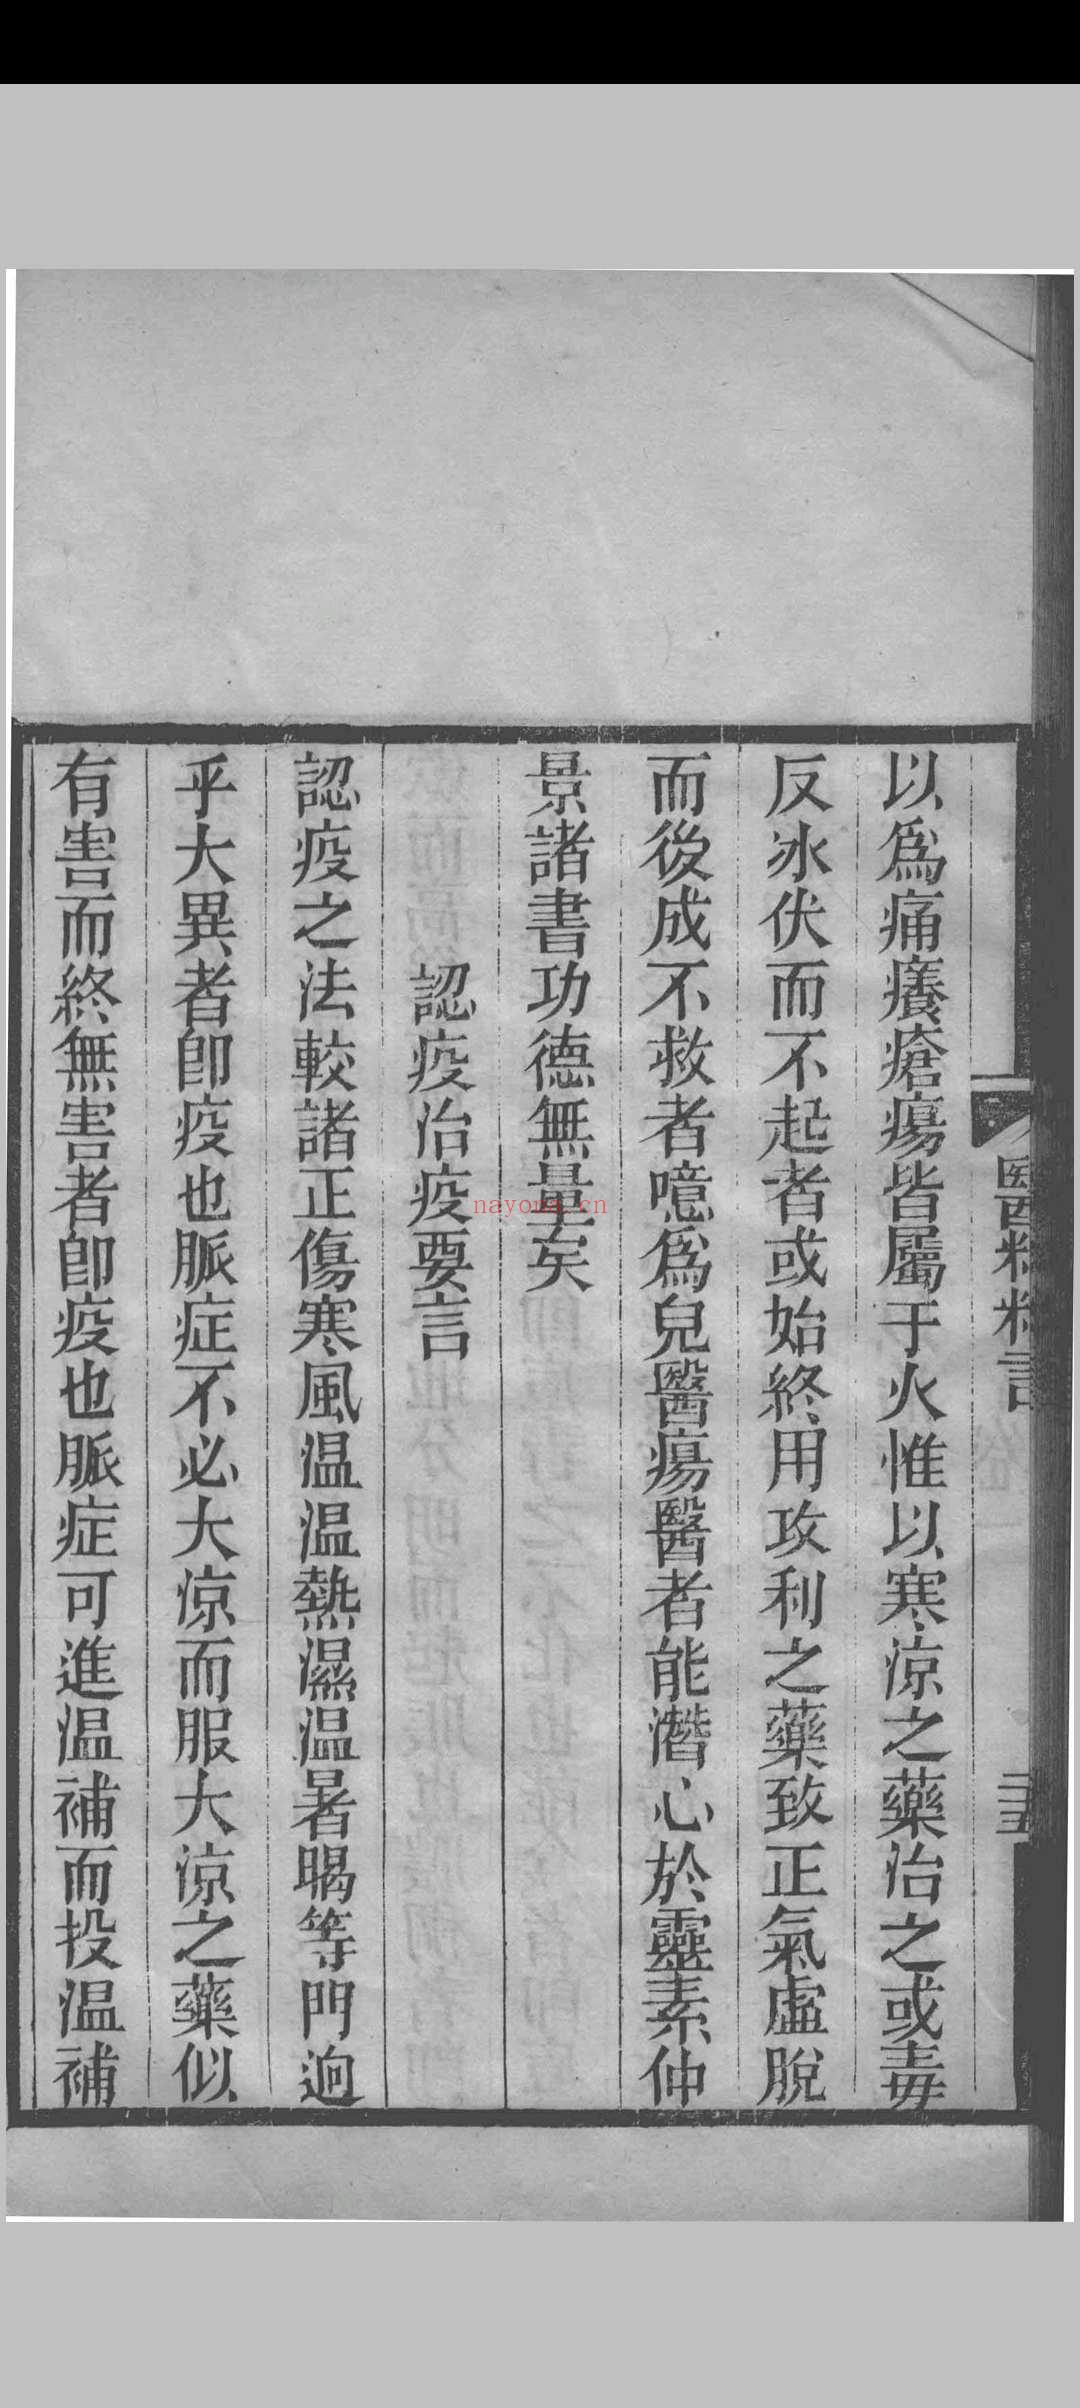 醫粹精言
二五
以爲痛癢瘡瘍皆屬于火惟以寒涼之藥治之或毒
反冰伏而不起者或始終用攻利之藥致正氣虛脫
而後成不救者噫爲兒醫瘍醫者能潛心於靈素仲
景諸書功德無量矣
認疫治疫要言
認疫之法較諸正傷寒風温温熱濕温暑暍等門逈
乎大異者卽疫也脈症不必大涼而服大涼之藥似
有害而終無害者卽疫也脈症可進温補而投温補
nayona.cn